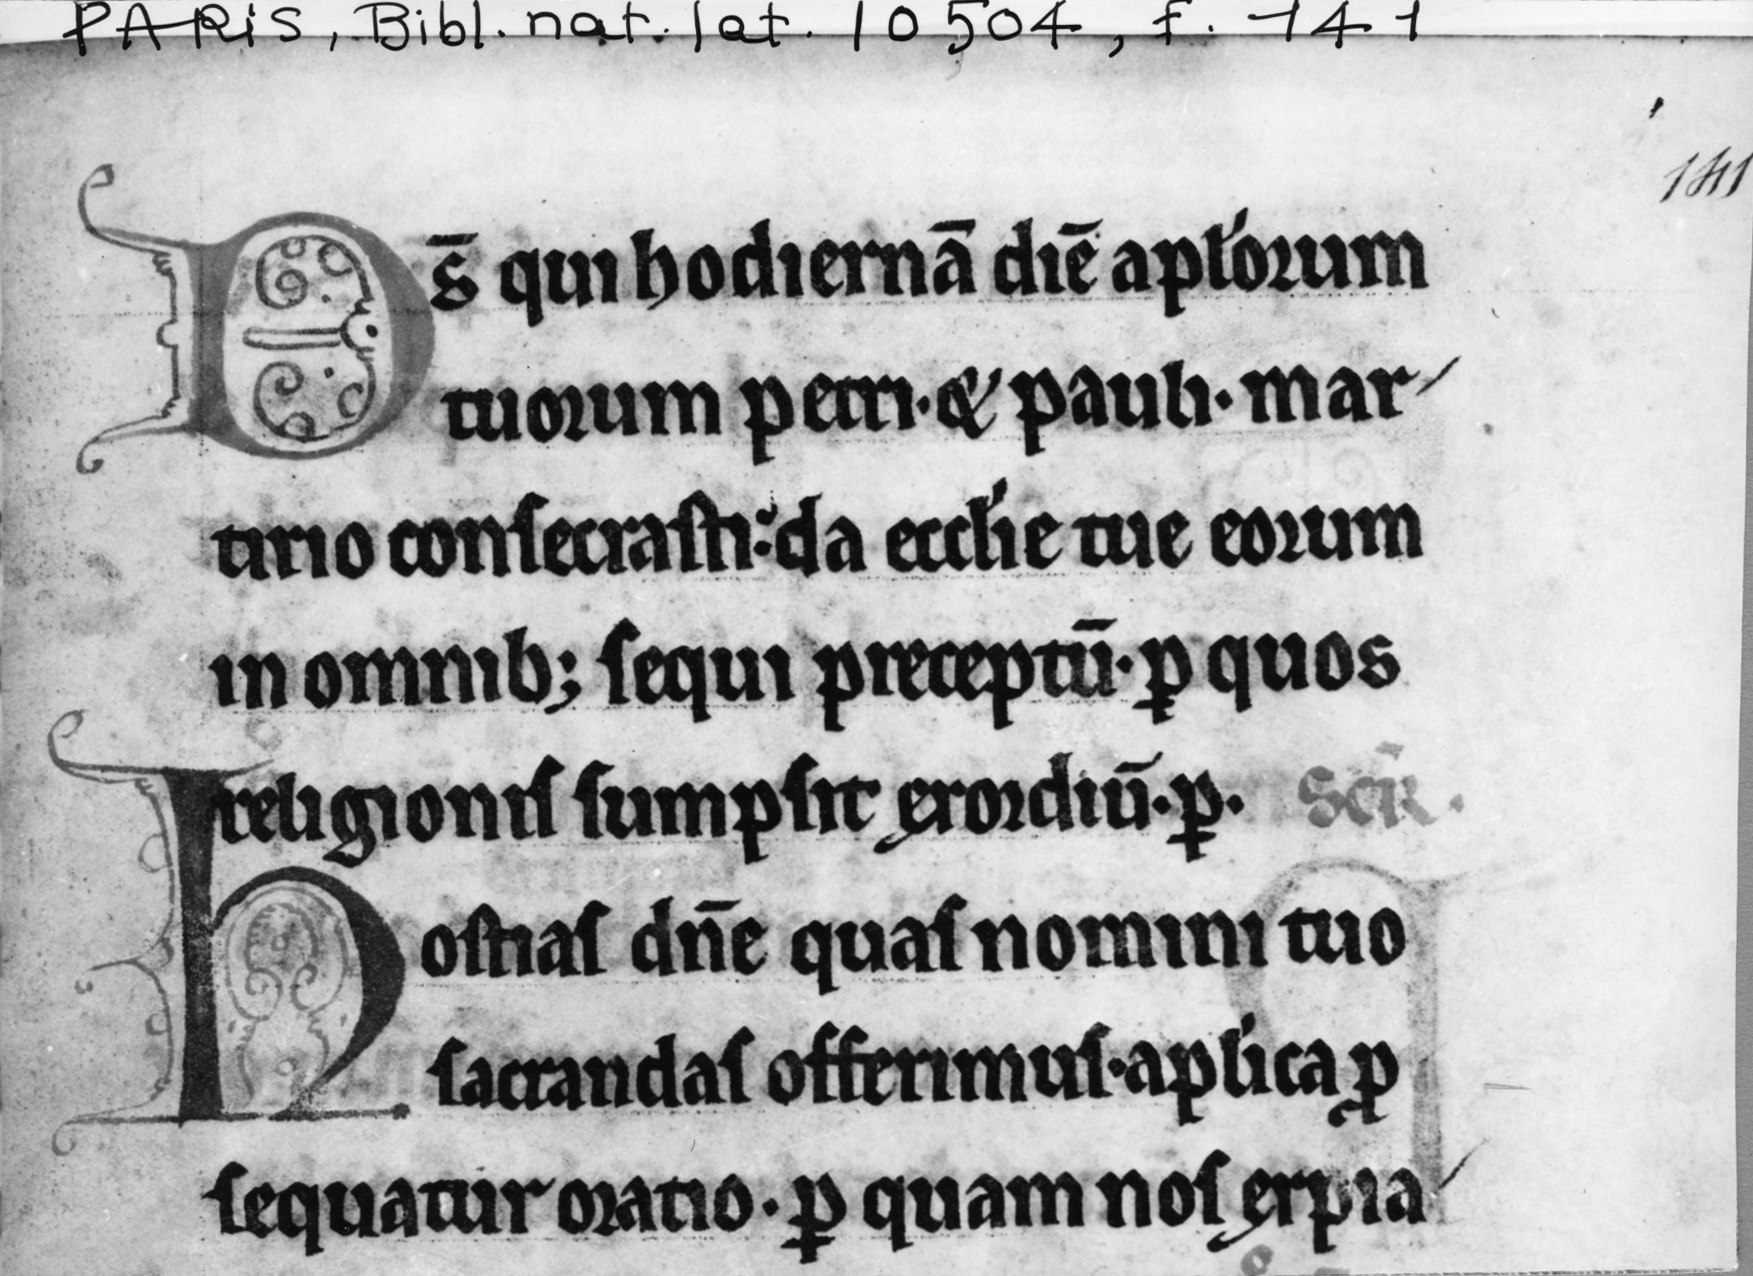 PARIS, Bibl. nat. lat. 10504, f. 141
141
Ds̄ qui hodiernā diē apl'orum
tuorum petri. & pauli. mar-
tirio consecrasti: da eccl'ie tue eorum
in omnib; sequi preceptū. ꝑ quos
religionis sumpsit exordiū. ꝑ. Scr̄.
Hostias dn̄e quas nomini tuo
sacrandas offerimus. apl'ica ꝓ
sequatur oratio. ꝑ quam nos expia-